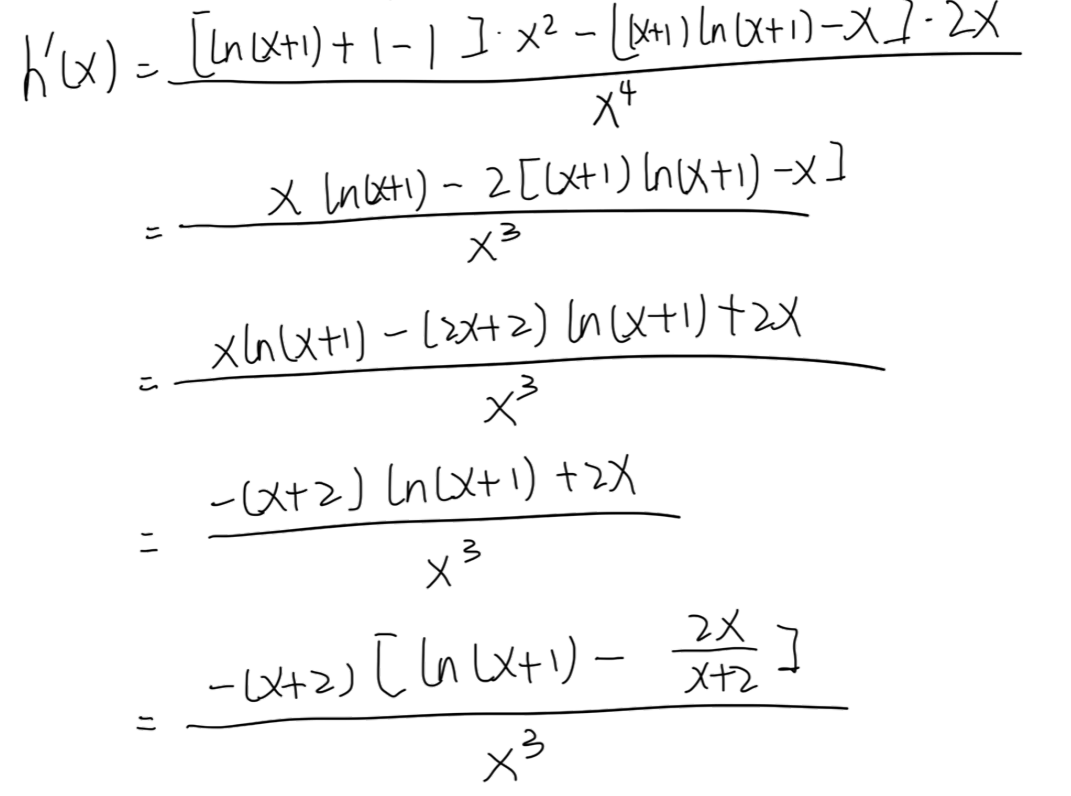 h'(x) = \frac{[ln(x+1)+1-1]·x^2-[(x+1)ln(x+1)-x]·2x}{x^4}
= \frac{x ln(x+1)-2[(x+1)ln(x+1)-x]}{x^3}
= \frac{xln(x+1)-(2x+2)ln(x+1)+2x}{x^3}
= \frac{-(x+2)ln(x+1)+2x}{x^3}
= \frac{-(x+2)[ln(x+1)-\frac{2x}{x+2}]}{x^3}